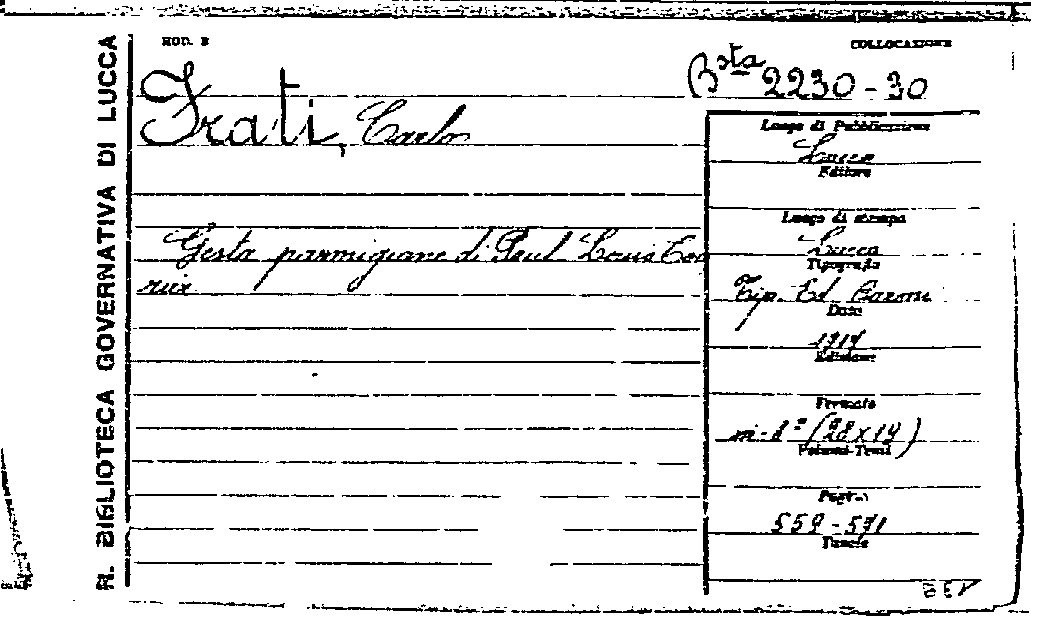 R. BIBLIOTECA GOVERNATIVA DI LUCCA
MOD. B
COLLOCAZIONE
Bsta 2230-30
Frati, Carlo
Gesta parmigiane di Paul Louis Cou
rier
Luogo di Pubblicazione
Lucca
Editore
Luogo di stampa
Lucca
Tipografo
Tip. Ed. Baroni
Data
Edizione
Formato
in-8° (28x19)
Volumi-Tomi
Pagine
Tavole